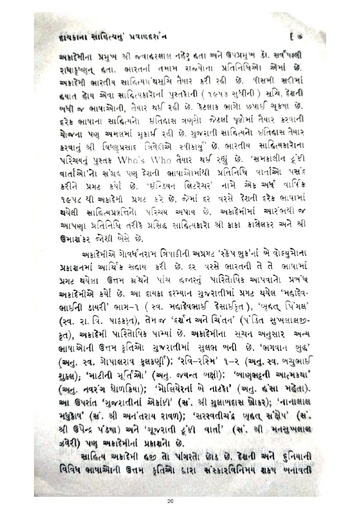 દાયકાના સાહિત્યનું પ્રવાહદર્શન [ ૭
અકાદેમીના પ્રમુખ શ્રી જવાહરલાલ નહેરુ હતા અને ઉપપ્રમુખ ડૉ. સર્વપલ્લી
રાધાકૃષ્ણન્ હતા. ભારતનાં તમામ રાજ્યોના પ્રતિનિધિઓ એમાં છે.
અકાદેમી ભારતીય સાહિત્યપ્રથસૂચિ તૈયાર કરી રહી છે. વીસમી સદીમાં
હયાત હોય એવા સાહિત્યકારોનાં પુસ્તકોની (૧૯૫૩ સુધીની) સૂચિ, દેશની
બધી જ ભાષાઓની, તૈયાર થઈ રહી છે. કેટલાક ભાગો છપાઈ ચૂકયા છે.
દરેક ભાષાના સાહિત્યનો ઇતિહાસ ત્રણસો જેટલાં પૃષ્ઠોમાં તૈયાર કરવાની
યોજના પણ અમલમાં મુકાઈ રહી છે. ગુજરાતી સાહિત્યનો ઇતિહાસ તૈયાર
કરવાનું શ્રી વિષ્ણુપ્રસાદ ત્રિવેદીએ સ્વીકાર્યું છે. ભારતીય સાહિત્યકારોના
પરિચયનું પુસ્તક Who's Who તૈયાર થઈ રહ્યું છે. 'સમકાલીન ટૂંકી
વાર્તાઓ'નો સંગ્રહ પણ દેશની ભાષાઓમાંથી પ્રતિનિધિ વાર્તાઓ પસંદ
કરીને પ્રગટ કર્યો છે. 'ઇન્ડિયન લિટરેચર' નામે એક અર્ધ વાર્ષિક
૧૯૫૮ થી અકાદેમી પ્રગટ કરે છે, જેમાં દર વરસે દેશની દરેક ભાષામાં
થયેલી સાહિત્યપ્રવૃત્તિનો પરિચય અપાય છે. અકાદેમીમાં આરંભથી જ
આપણા પ્રતિનિધિ તરીકે પ્રસિદ્ધ સાહિત્યકારો શ્રી કાકા કાલેલકર અને શ્રી
ઉમાશંકર જોશી બેસે છે.
અકાદેમીએ ગોવર્ધનરામ ત્રિપાઠીની અપ્રગટ 'સ્ક્રેપ બુક'નાં બે વૉલ્યુમોના
પ્રકાશનમાં આર્થિક સહાય કરી છે. દર વરસે ભારતની તે તે ભાષામાં
પ્રગટ થયેલા ઉત્તમ ગ્રંથને પાંચ હજારનું પારિતોષિક આપવાનો પ્રબંધ
અકાદેમીએ કર્યો છે. આ દાયકા દરમ્યાન ગુજરાતીમાં પ્રગટ થયેલ 'મહાદેવ-
ભાઈની ડાયરી' ભાગ-૧ (સ્વ. મહાદેવભાઈ દેસાઈકૃત), 'બૃહત્ પિંગલ'
(સ્વ. રા. વિ. પાઠકકૃત), તેમ જ 'દર્શન અને ચિંતન' (પંડિત સુખલાલજી-
કૃત), અકાદેમી પારિતોષિક પામ્યાં છે. અકાદેમીના સૂચન અનુસાર અન્ય
ભાષાઓની ઉત્તમ કૃતિઓ ગુજરાતીમાં સુલભ બની છે. 'ભગવાન બુદ્ધ'
(અનુ. સ્વ. ગોપાળરાવ કુલકર્ણી); 'રવિ-રશ્મિ' ૧-૨ (અનુ. સ્વ. બચુભાઈ
શુક્લ); 'માટીની મૂર્તિઓ' (અનુ. જયન્ત બક્ષી); 'બાણભટ્ટની આત્મકથા'
(અનુ. નવરંગ ધોળકિયા); 'મોલિયેરનાં બે નાટકો' (અનુ. હંસા મહેતા).
આ ઉપરાંત 'ગુજરાતીનાં એકાંકી' (સં. શ્રી ગુલાબદાસ બ્રોકર); 'નાનાલાલ
મધુકોષ' (સં. શ્રી અનંતરાય રાવળ); 'સરસ્વતીચંદ્ર બૃહત્ સંક્ષેપ' (સં.
શ્રી ઉપેન્દ્ર પંડ્યા) અને 'ગુજરાતી ટૂંકી વાર્તા' (સં. શ્રી મનસુખલાલ
ઝવેરી) પણ અકાદેમીનાં પ્રકાશનો છે.
સાહિત્ય અકાદેમી હજી તો પાંગરતો છોડ છે. દેશની અને દુનિયાની
વિવિધ ભાષાઓની ઉત્તમ કૃતિઓ દ્વારા સંસ્કારવિનિમય શક્ય બનાવતી
26